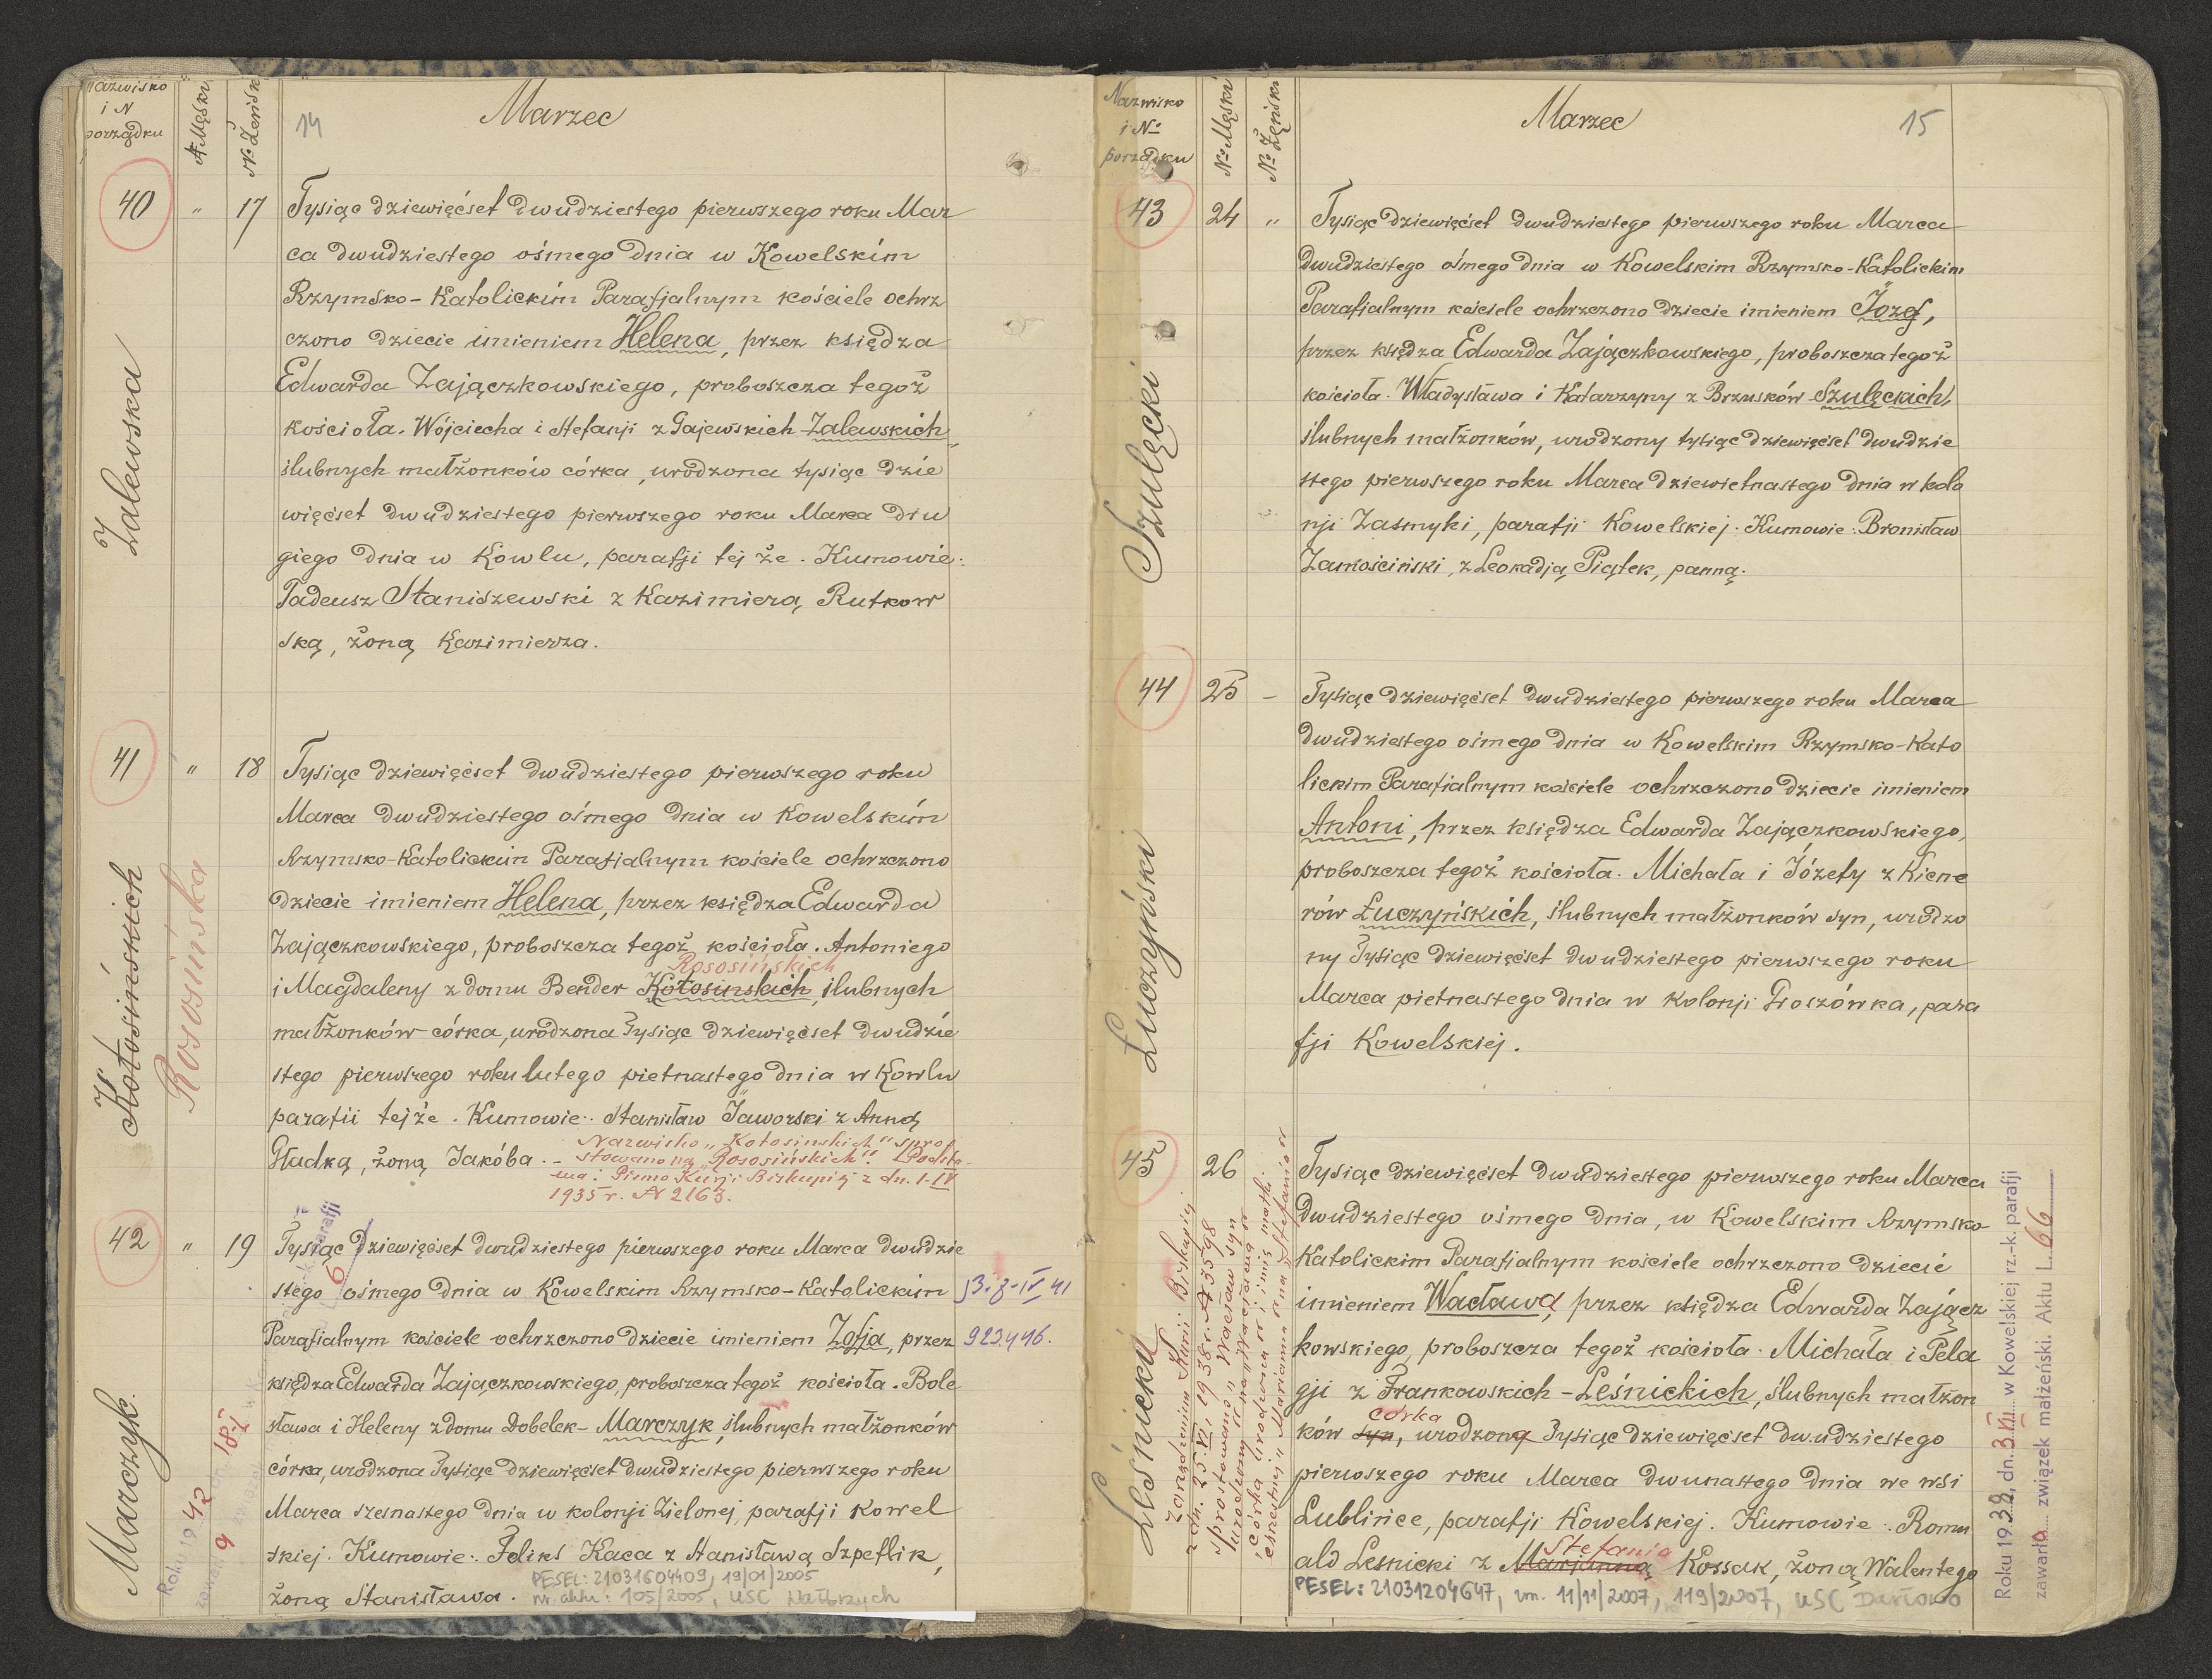 Nazwisko
i N
porządku
№ Męski
№ Żeńsk
14
Marzec
40
"
17
Zalewska
Tysiąc dziewięćset dwudziestego pierwszego roku Mar
ca dwudziestego ósmego dnia w Kowelskim
Rzymsko-Katolickim Parafjalnym kościele ochrz
czono dziecie imieniem Helena, przez księdza
Edwarda Zajączkowskiego, proboszcza tegoż
kościoła. Wojciecha i Stefanji z Gajewskich-Zalewskich
ślubnych małżonków córka, urodzona tysiąc dzie
więćset dwudziestego pierwszego roku Marca dru
giego dnia w Kowlu, parafji tej że. Kumowie:
Tadeusz Staniszewski z Kazimierą Rutkow
ską, żoną Kazimierza.
41
"
18
Kołosińskich
Rososińska
Tysiąc dziewięćset dwudziestego pierwszego roku
Marca dwudziestego ósmego dnia w Kowelskim
Rzymsko-Katolickim Parafjalnym kościele ochrzczono
dziecie imieniem Helena, przez księdza Edwarda
Zajączkowskiego, proboszcza tegoż kościoła. Antoniego
Rososińskich
i Magdaleny z domu Bender Kołosinskich, ślubnych
małżonków córka, urodzona Tysiąc dziewięćset dwudzie
stego pierwszego roku lutego pietnastego dnia w Kowlu
parafii tejże. Kumowie: Stanisław Jaworski z Anną
Gładką, żoną Jakóba.
Nazwisko "Kołosinskich" spro
stowano na "Rososińskich". Podsta
wa: Pismo Kurji Biskupiej z dn. 1.IV
1935 r. № 2163.
42
"
19
Marczyk.
Tysiąc dziewięćset dwudziestego pierwszego roku Marca dwudzie
stego ósmego dnia w Kowelskim Rzymsko-Katolickim
Parafialnym kościele ochrzczono dziecie imieniem Zofja, przez
księdza Edwarda Zajączkowskiego, proboszcza tegoż kościoła. Bole
sława i Heleny z domu Dobelek-Marczyk, ślubnych małżonków
córka, urodzona Tysiąc dziewięćset dwudziestego pierwszego roku
Marca szesnastego dnia w kolonji Zielonej, parafji Kowel
skiej. Kumowie: Feliks Kaca z Stanisławą Szpeflik,
żoną Stanisława.
923446.
Roku 19 42
PESEL: 21031604409, 19/01/2005
nr aktu: 105/2005, USC Wałbrzych
Nazwisko
i №
porządku
№ Męski
№ Żeński
Marzec
15
43
24
"
Szulęcki
Tysiąc dziewięćset dwudziestego pierwszego roku Marca
dwudziestego ósmego dnia w Kowelskim Rzymsko-Katolickim
Parafialnym kościele ochrzczono dziecie imieniem Józef,
przez księdza Edwarda Zajączkowskiego, proboszcza tegoż
kościoła. Władysława i Katarzyny z Brzusków-Szulęckich,
ślubnych małżonków, urodzony tysiąc dziewięćset dwudzie
stego pierwszego roku Marca dziewietnastego dnia w kolo
nji Zasmyki, parafji Kowelskiej. Kumowie: Bronisław
Zamościński, z Leokadją Piątek, panną.
44
25
-
Łuczyński
Tysiąc dziewięćset dwudziestego pierwszego roku Marca
dwudziestego ósmego dnia w Kowelskim Rzymsko-Kato
lickim Parafialnym kościele ochrzczono dziecie imieniem
Antoni, przez księdza Edwarda Zajączkowskiego,
proboszcza tegoż kościoła. Michała i Józefy z Kiene
rów Łuczyńskich, ślubnych małżonków syn, urodzo
ny Tysiąc dziewięćset dwudziestego pierwszego roku
Marca pietnastego dnia w Kolonji Groszówka, para
fji Kowelskiej.
45
26
Leśnicka
Zarządzeniem Kurii Biskupiej
z dn. 25.VI.1938 r. № 3598
sprostowano "Wacław syn
urodzony" na "Wacława
córka urodzona" i imię matki
chrzestnej "Marianna" na "Stefania"
Tysiąc dziewięćset dwudziestego pierwszego roku Marca
dwudziestego ósmego dnia, w Kowelskim Rzymsko-
Katolickim Parafialnym kościele ochrzczono dziecie
imieniem Wacława, przez księdza Edwarda Zającz
kowskiego, proboszcza tegoż kościoła. Michała i Pela
gji z Frankowskich-Leśnickich, ślubnych małżon
córka
ków syn, urodzona Tysiąc dziewięćset dwudziestego
pierwszego roku Marca dwunastego dnia we wsi
Lublińce, parafji Kowelskiej. Kumowie: Romu
Stefania
ald Lesnicki z Marianną Kossak, żoną Walentego
PESEL: 21031204647, zm. 11/11/2007, 119/2007, USC Darłowo
Roku 1939, dn. 3.VII w Kowelskiej rz.-k. parafji
zawarła związek małżeński. Aktu L. 66